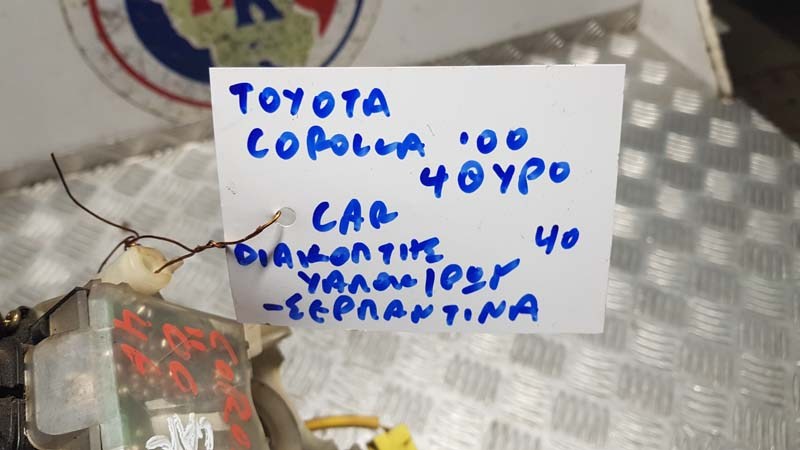 TOYOTA
COROLLA '00
4ΘΥΡΟ
CAR
ΔΙΑΚΟΠΤΗΣ 40
ΥΑΛΟΚ/ΡΩΝ
-ΣΕΡΠΑΝΤΙΝΑ